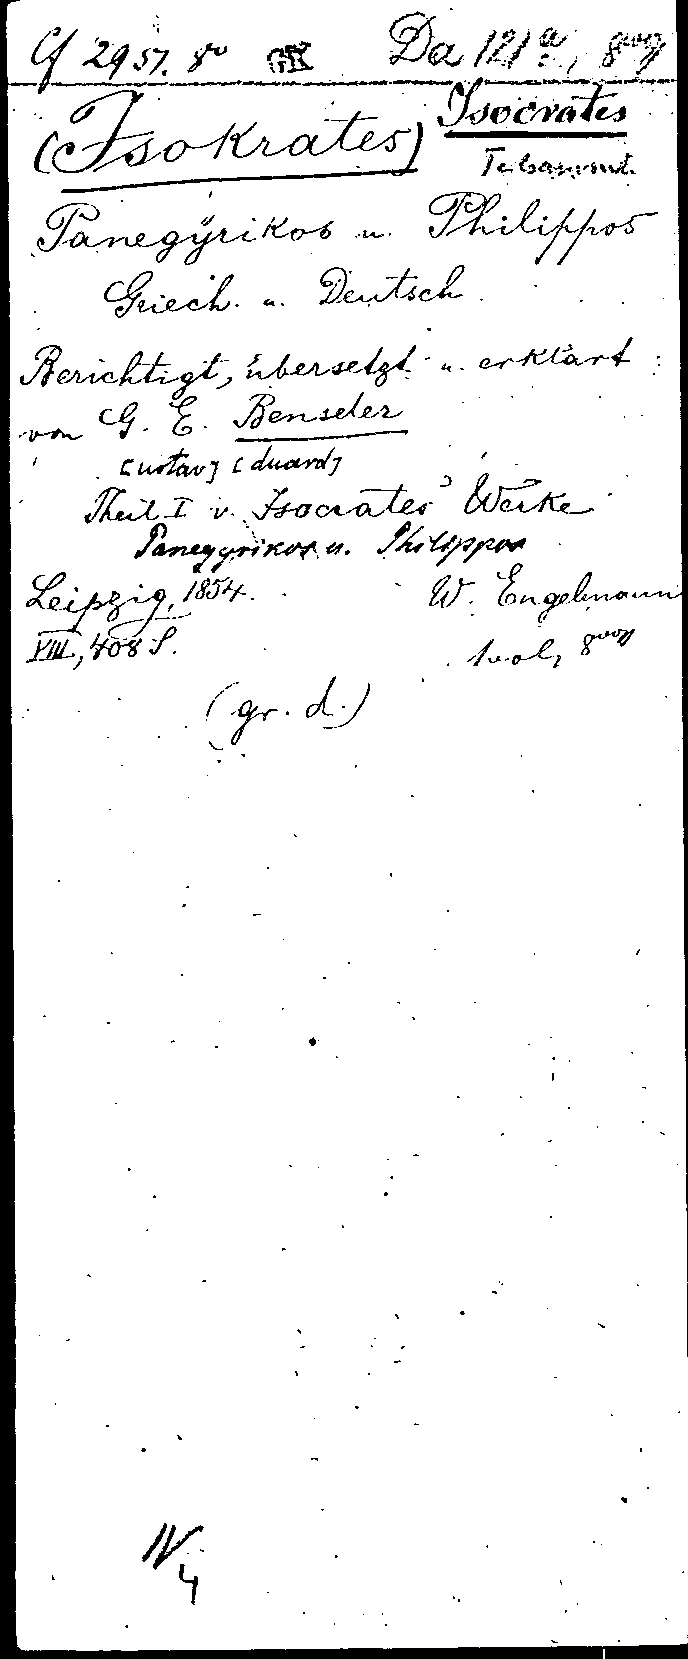 Cf 2951. 8° GK Da 121 a, 8vog
(Isokrates) Isocrates
Panegÿrikos u. Philippos
Griech. u. Deutsch
Berichtigt, übersetzt u. erklärt
von G. E. Benseler
[ustav] [duard]
Theil I v. Isocrates' Werke
Panegyrikos u. Philippos
Leipzig, 1854. W. Engelmann
VIII, 408 S. 1 vol,
(gr. d.)
IV
4